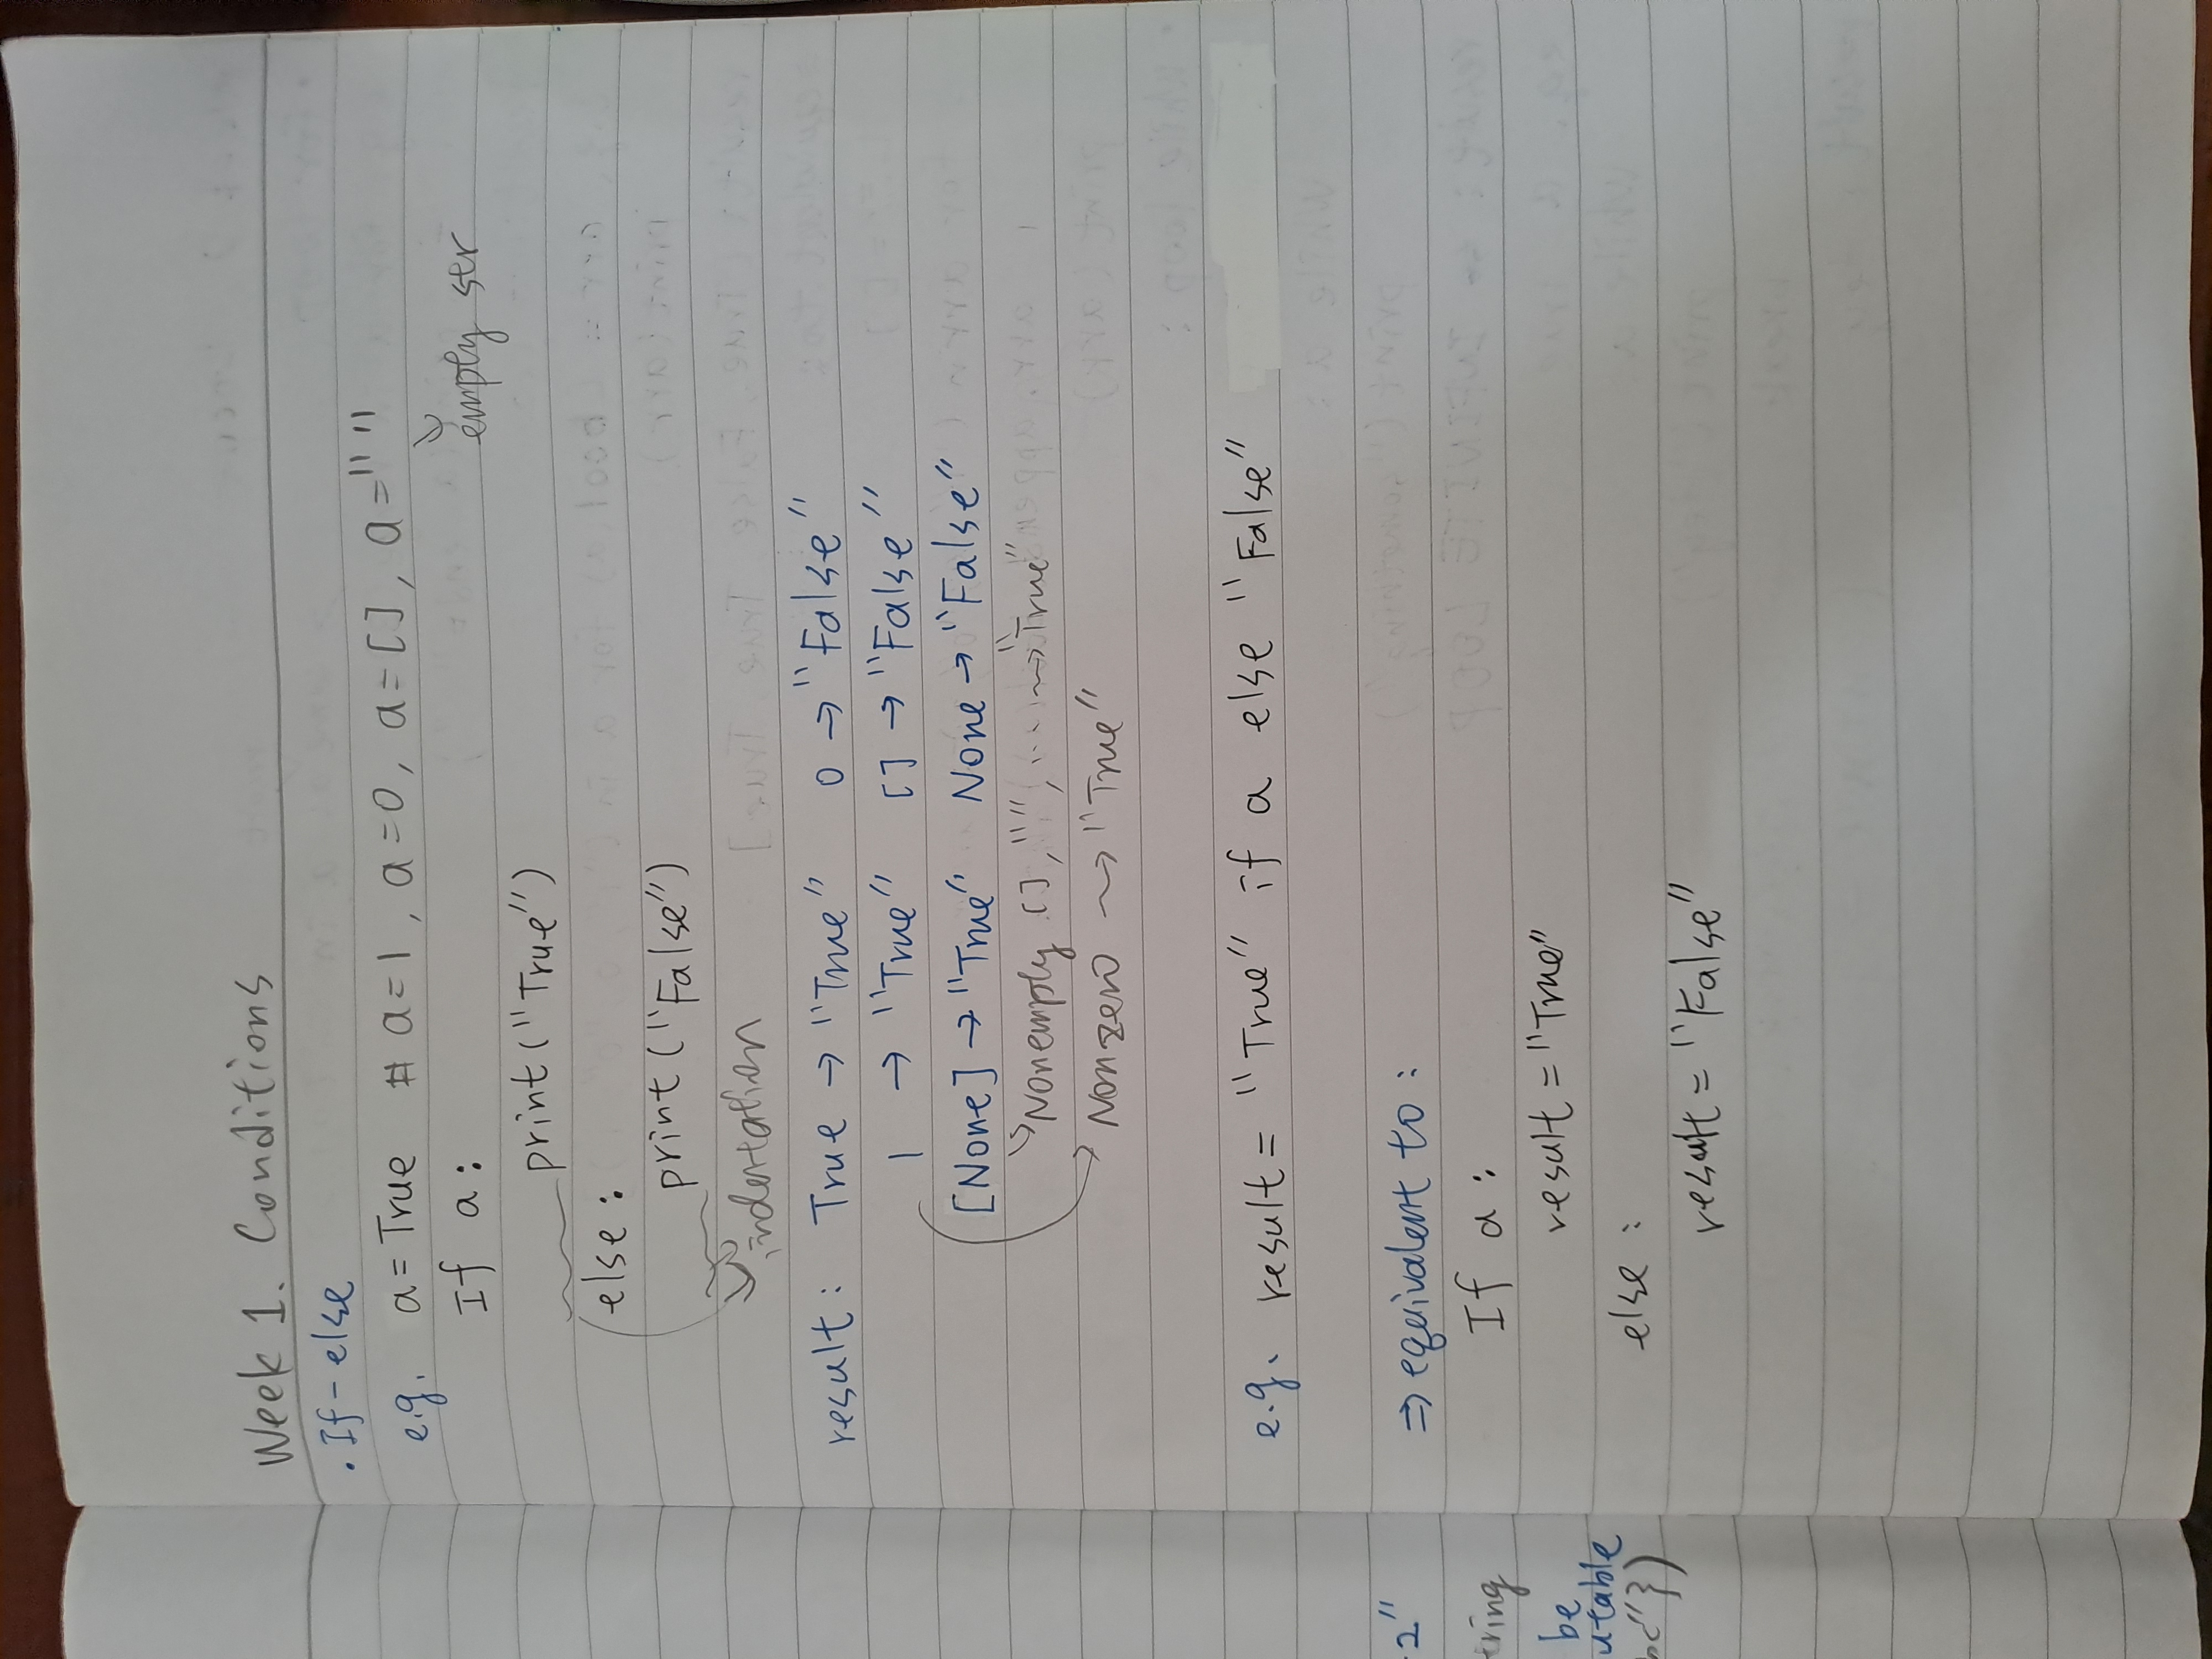 Week 1. Conditions
· If-else
e.g. a = True # a=1, a=0, a=[], a=" "
empty str
If a:
print ("True")
else:
print ("False")
indentation
result: True → "True" 0 → "False"
1 → "True" [] → "False"
[None] → "True" None → "False"
Nonempty [], "", ... → "True"
Nonzero → "True"
e.g. result = "True" if a else "False"
⇒ equivalent to:
If a:
result = "True"
else:
result = "False"
2"
tring
be
utable
"})